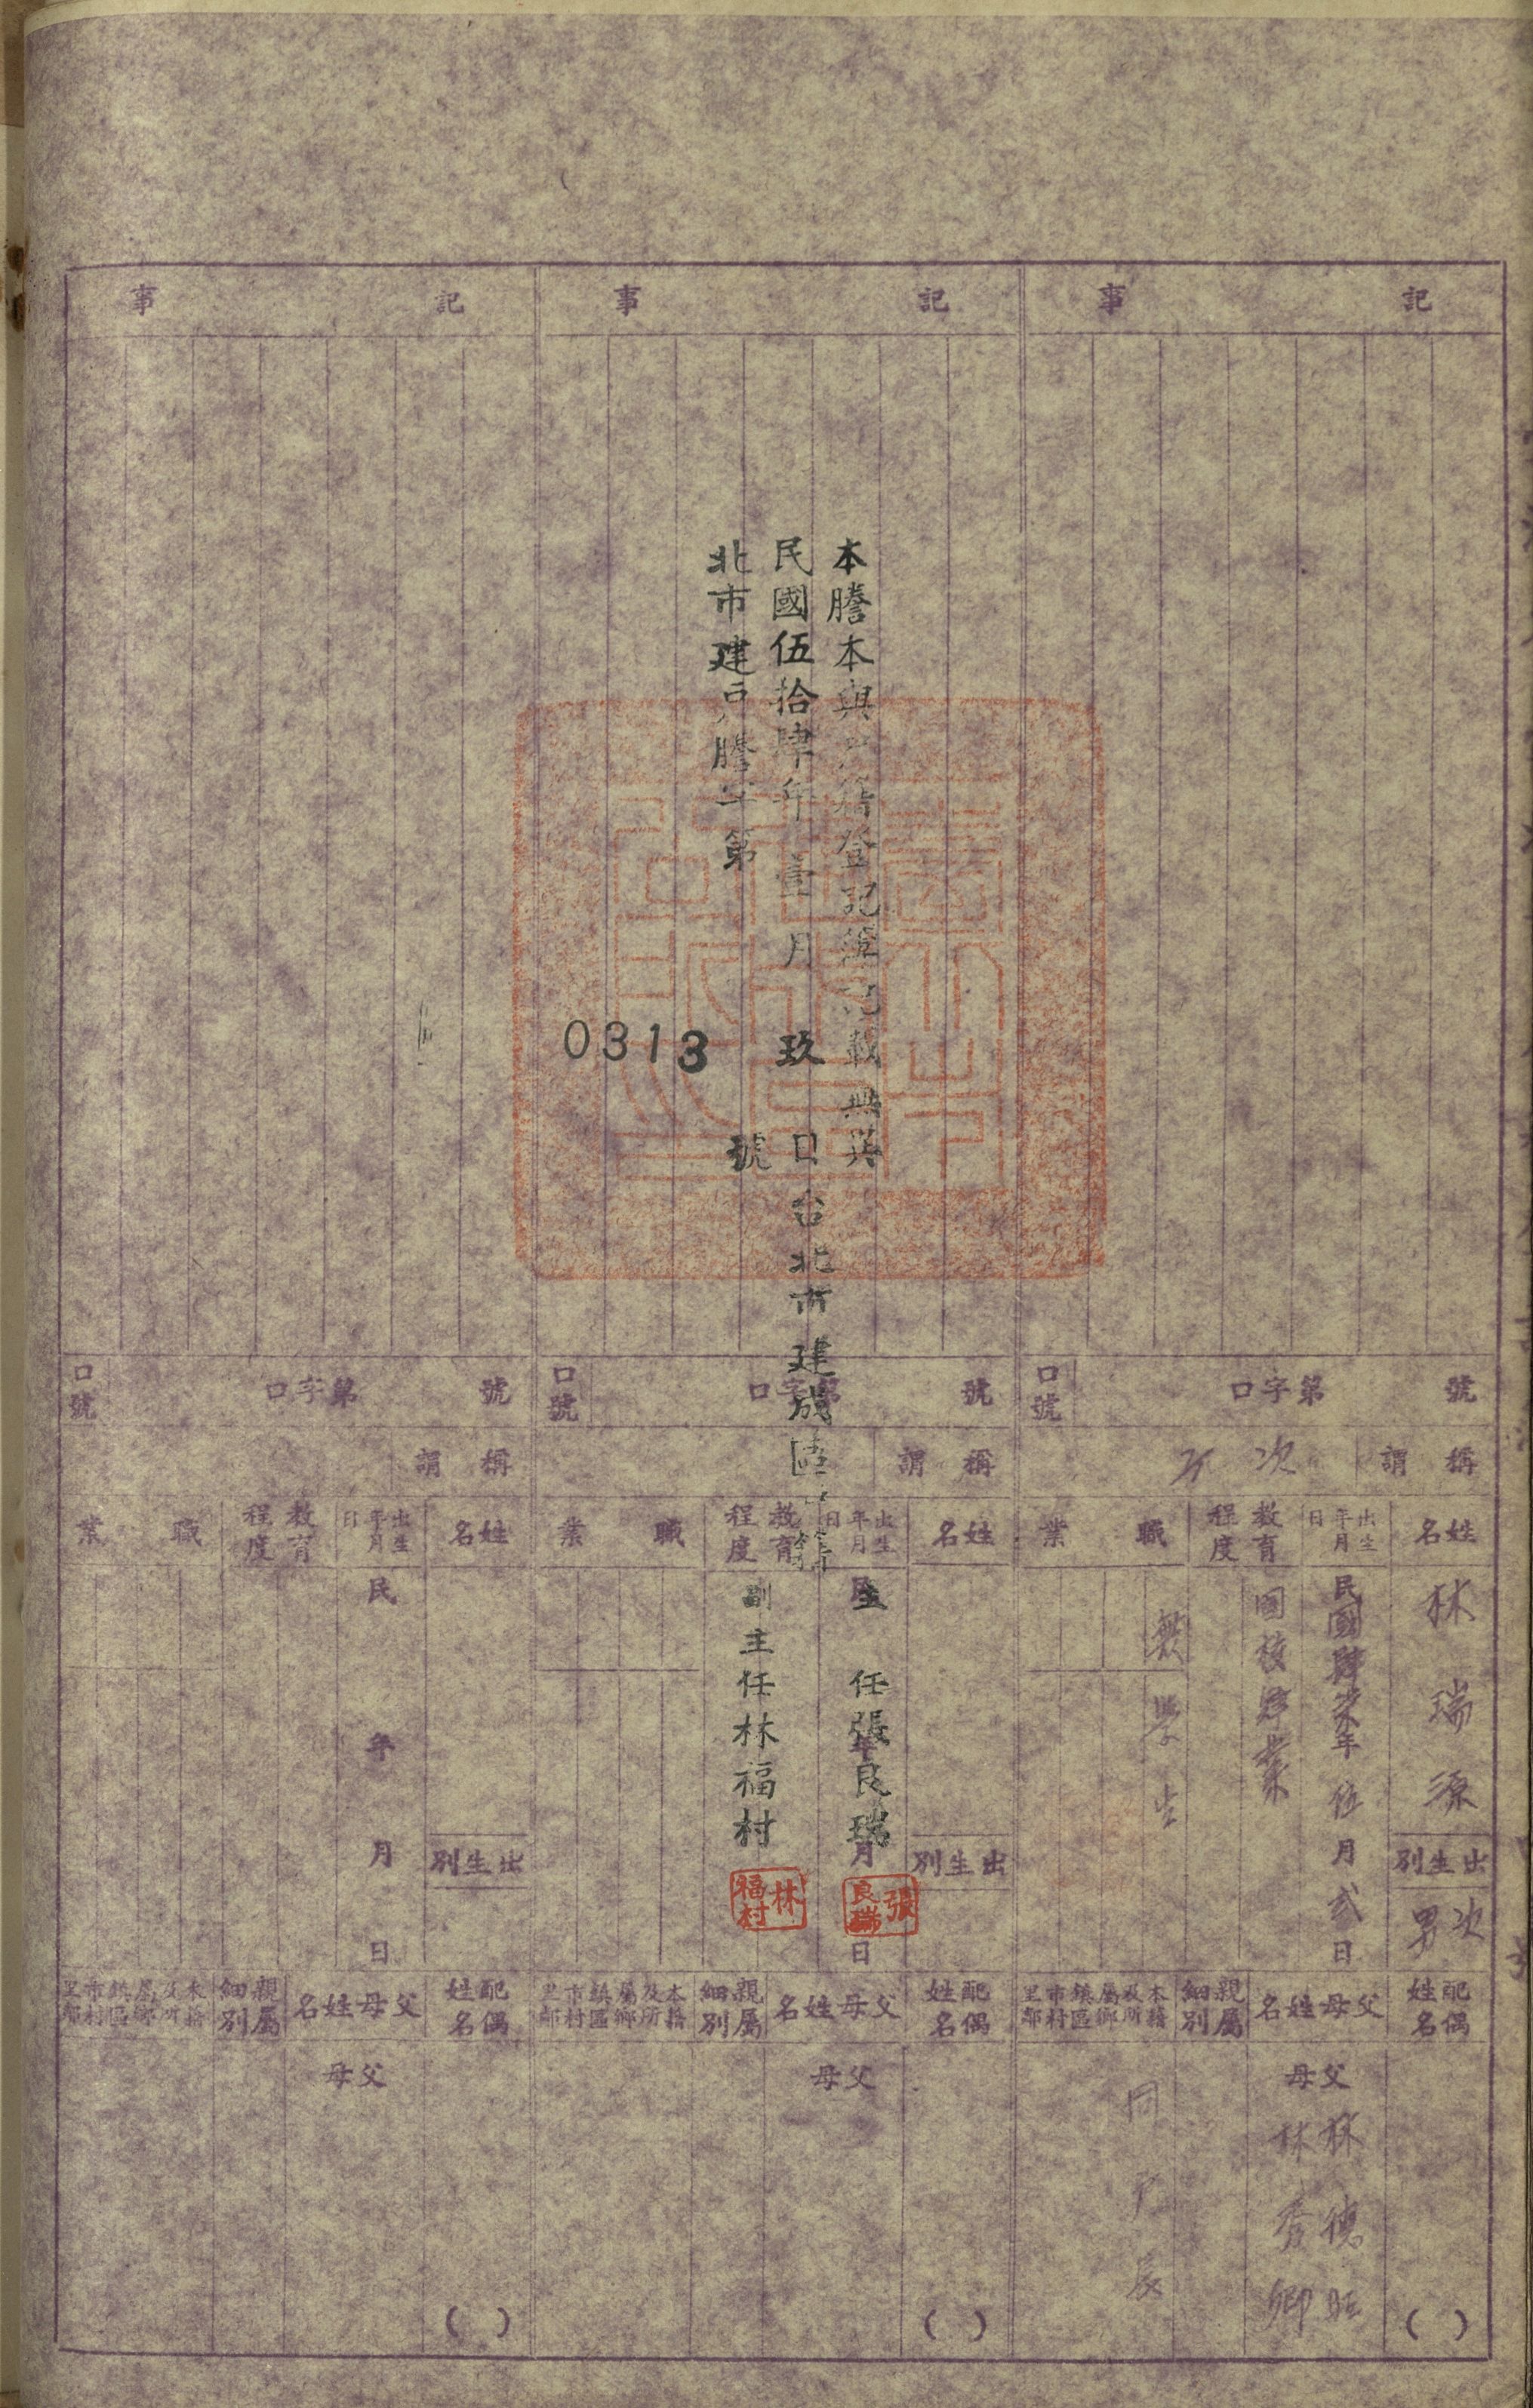 記事
號
口字第
口號
稱謂
次子
姓名
出生年月日
教育程度
職業
林瑞源
出生別
次男
民國肆柒年伍月弍日
國校肄業
學生
配偶姓名
父母姓名
親屬細別
本籍及所屬鄉鎮區市村里鄰
父母
林德旺
林秀卿
同戶長
( )
記事
本謄本與戶籍登記簿記載無異
民國伍拾肆年壹月玖日台北市建成區戶籍
北市建戶謄字第0313號
主任張良瑞
副主任林福村
張良瑞
林福村
號
口字第
口號
稱謂
姓名
出生年月日
教育程度
職業
出生別
民 年 月 日
配偶姓名
父母姓名
親屬細別
本籍及所屬鄉鎮區市村里鄰
父母
( )
記事
號
口字第
口號
稱謂
姓名
出生年月日
教育程度
職業
出生別
民 年 月 日
配偶姓名
父母姓名
親屬細別
本籍及所屬鄉鎮區市村里鄰
父母
( )